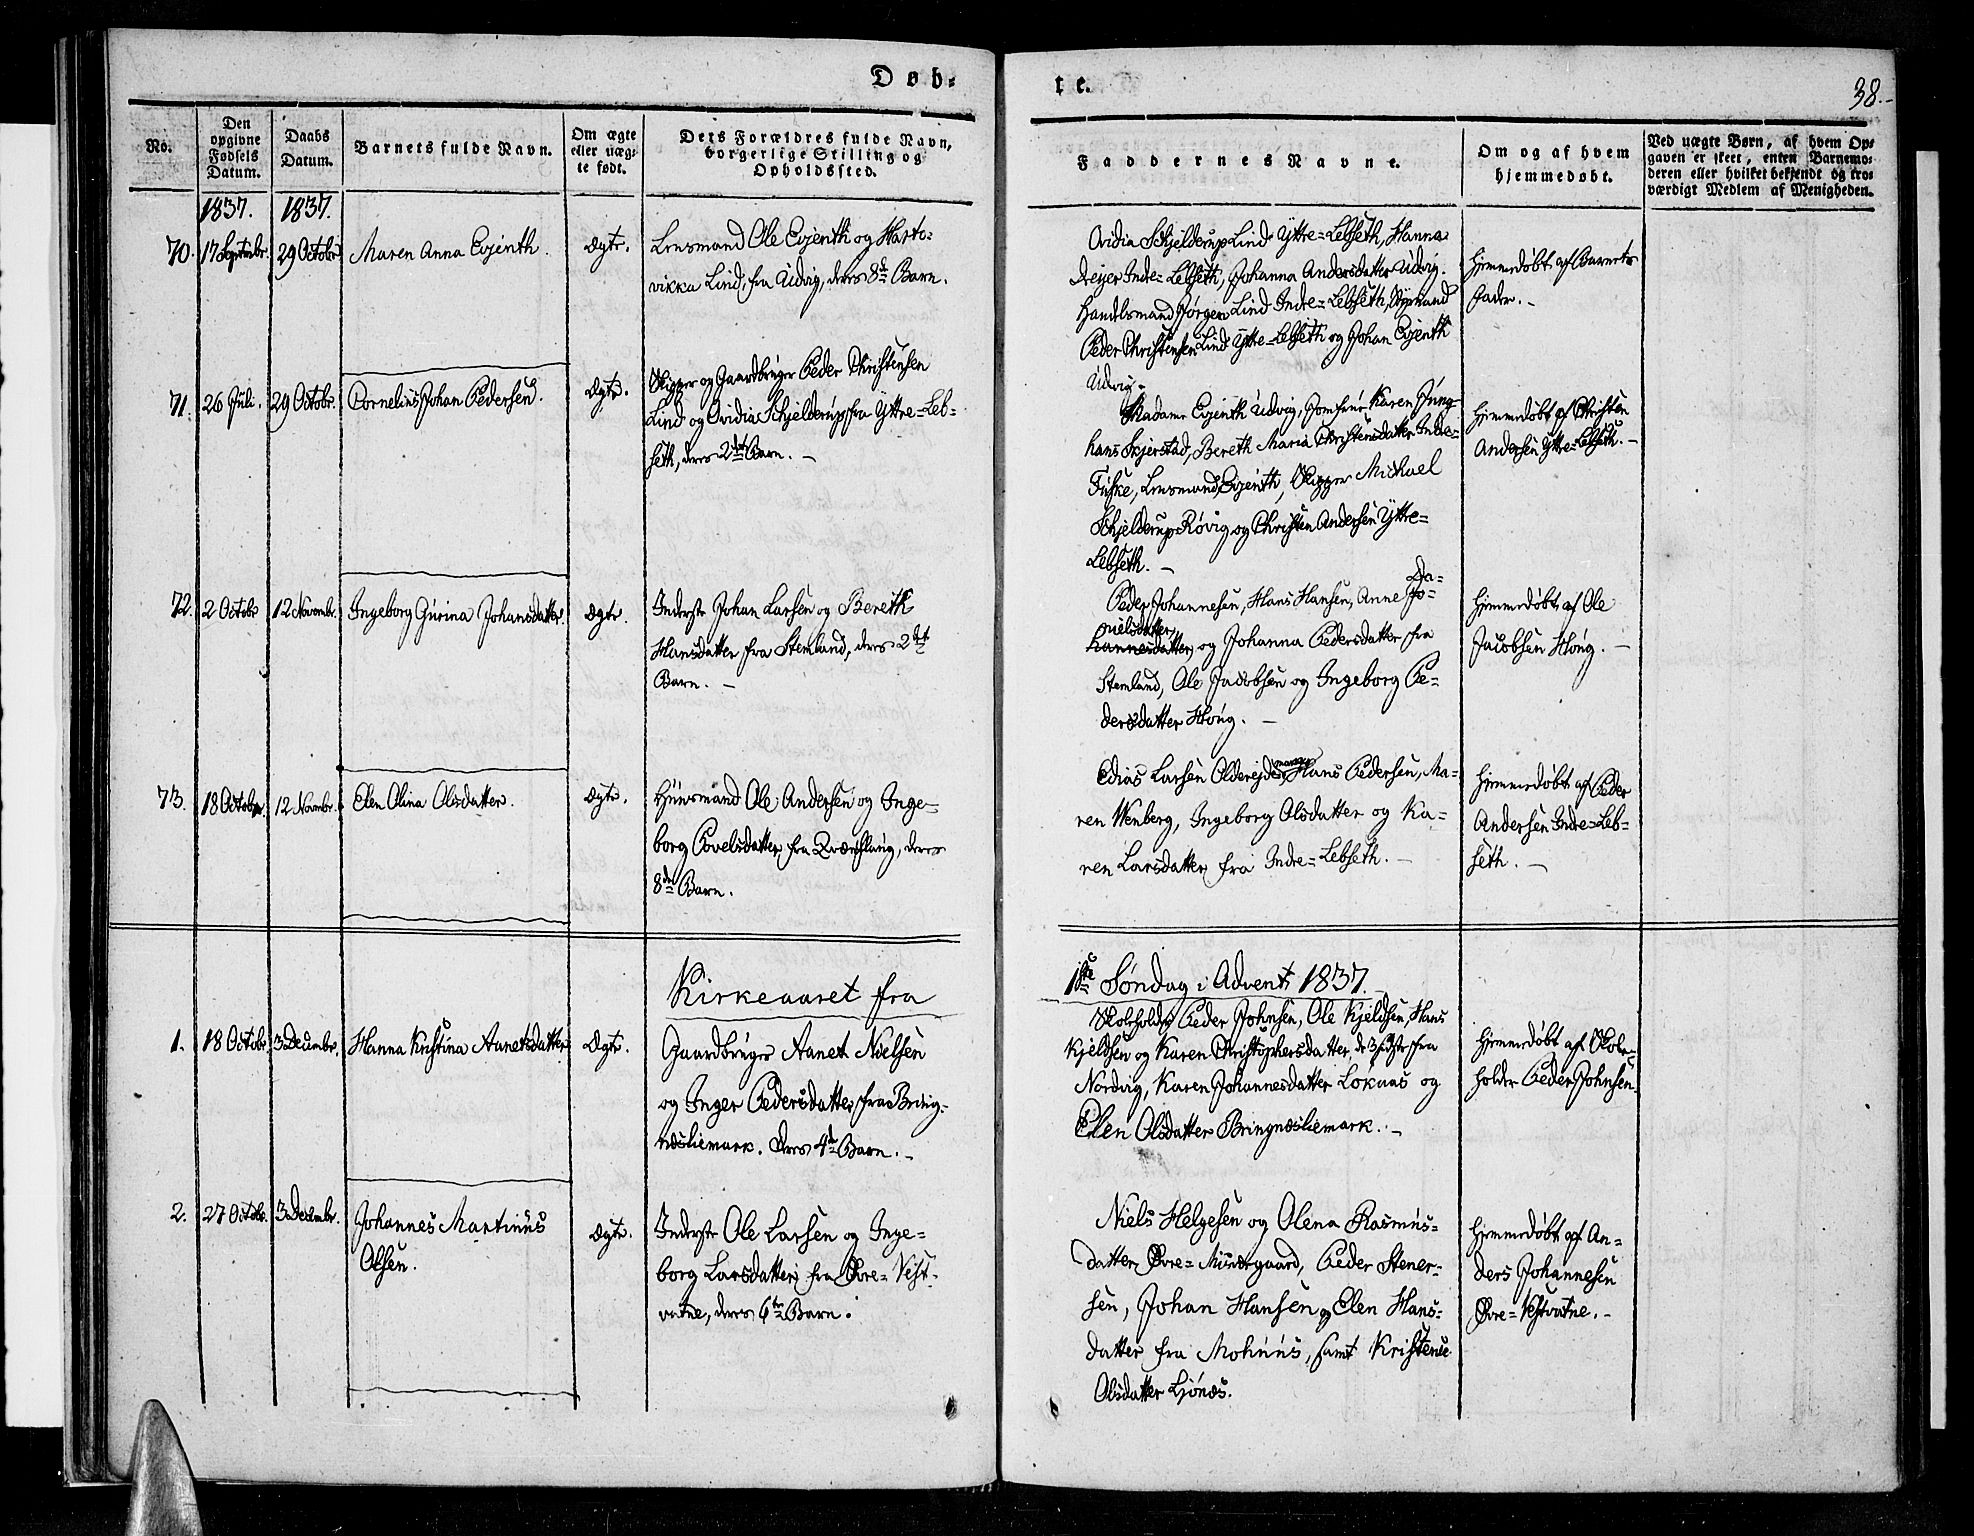 Døb-
te.
38.
No.
Den opgivne Fødsels Datum.
Daabs Datum.
Barnets fulde Navn.
Om ægte eller uægte født.
Dets Forældres fulde Navn, borgerlige Stilling og Opholdssted.
Faddernes Navne.
Om og af hvem hjemmedøbt.
Ved uægte Børn, af hvem Opgaven er skeet, enten Barnemoderen eller hvilket bekjendt og troværdigt Medlem af Menigheden.
1837. 1837.
70. 17 Septembr. 29 Octobr. Maren Anna Evjenth. ægte.
Lensmand Ole Evjenth og Harto-
vikka Lind, fra Udvig, deres 8de Barn.
Ovidia Schjelderup Lind Yttre-Lebseth, Hanna
Dreijer Indre-Lebseth, Johanna Andersdatter Udvig.
Handelsmand Jørgen Lind Indre-Lebseth,
Peder Christensen Lind Yttre-Lebseth og Johan Evjenth
Udvig.
Hjemmedøbt af Barnets
Fader. -
71. 26 Juli. 29 Octobr. Cornelius Johan Pedersen. ægte.
Skipper og Gaardbruger Peder Christensen
Lind og Ovidia Schjelderup fra Yttre-Leb-
seth, deres 2det Barn. -
Madame Evjenth Udvig, Jomfrue Karen Jung-
hans Skjerstad, Bereth Maria Christensdatter Indre-
Fuske, Lensmand Evjenth, Skipper Michael
Schjelderup Røvig og Christen Andersen Yttre-
Lebseth. -
Hjemmedøbt af Christen
Andersen Yttre-Lebseth. -
72. 2 Octobr 12 Novembr. Ingeborg Gurina Johansdatter. ægte.
Inderst Johan Larsen og Bereth
Hansdatter fra Stemland, deres 2det
Barn. -
Peder Johannesen, Hans Hansen, Anne Jo- Da-
nielsdatter
hannesdatter, og Johanna Pedersdatter fra
Stemland, Ole Jacobsen og Ingeborg Pe-
dersdatter Houg. -
Hjemmedøbt af Ole
Jacobsen Houg. -
73. 18 Octobr. 12 Novembr. Elen Olina Olsdatter. ægte.
Huusmand Ole Andersen og Inge-
borg Povelsdatter, fra Qvænflaug, deres
8de Barn.
Edias Larsen Hans Pedersen, Ma-
ren Wenberg, Ingeborg Olsdatter og Ka-
ren Larsdatter fra Indre-Lebseth. -
Hjemmedøbt af Peder
Andersen Indre-Leb-
seth. -
Kirkeaaret fra 1ste Søndag i Advent 1837.
1. 18 Octobr. 3 Decembr. Hanna Kristina Aanetsdatter ægte.
Gaardbruger Aanet Nielsen
og Inger Pedersdatter, fra Bring-
næsliemark. Deres 4de Barn. -
Skoleholder Peder Johnsen, Ole Kjeldsen, Hans
Kjeldsen og Karen Christophersdatter, de 3 fra
Nordvig, Karen Johannesdatter Løkaas og
Elen Olsdatter Bringnæsliemark. -
Hjemmedøbt af Skole-
holder Peder Johnsen.
2. 27 Octobr. 3 Decembr. Johannes Martinus
Olsen.
ægte.
Inderst Ole Larsen og Inge-
borg Larsdatter, fra Øvre-Vest-
vatne, deres 6te Barn.
Niels Helgesen og Olena Rasmus-
datter Øvre- Peder Stener-
sen, Johan Hansen og Elen Hans-
datter fra Mohuus, samt Kristense
Olsdatter Ljønæs.
Hjemmedøbt af An-
ders Johannesen
Øvre-Vestvatne. -